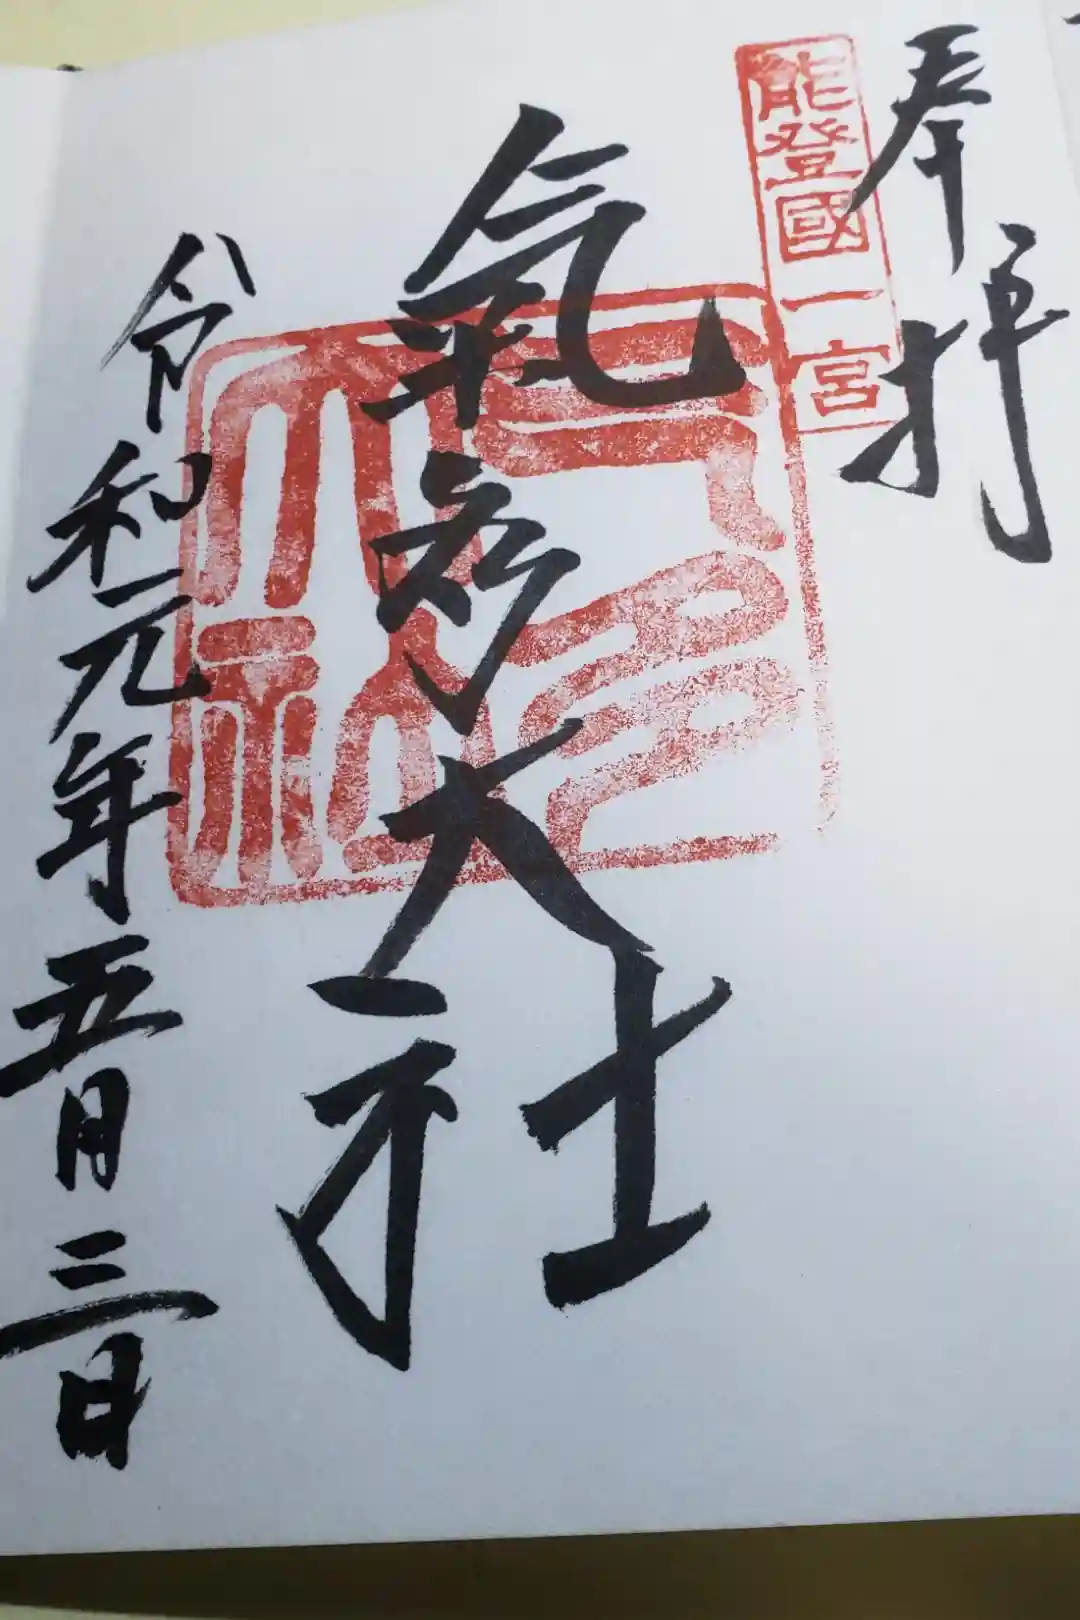 奉拝
能登國一宮
氣多大社
氣多大社
令和元年五月三日